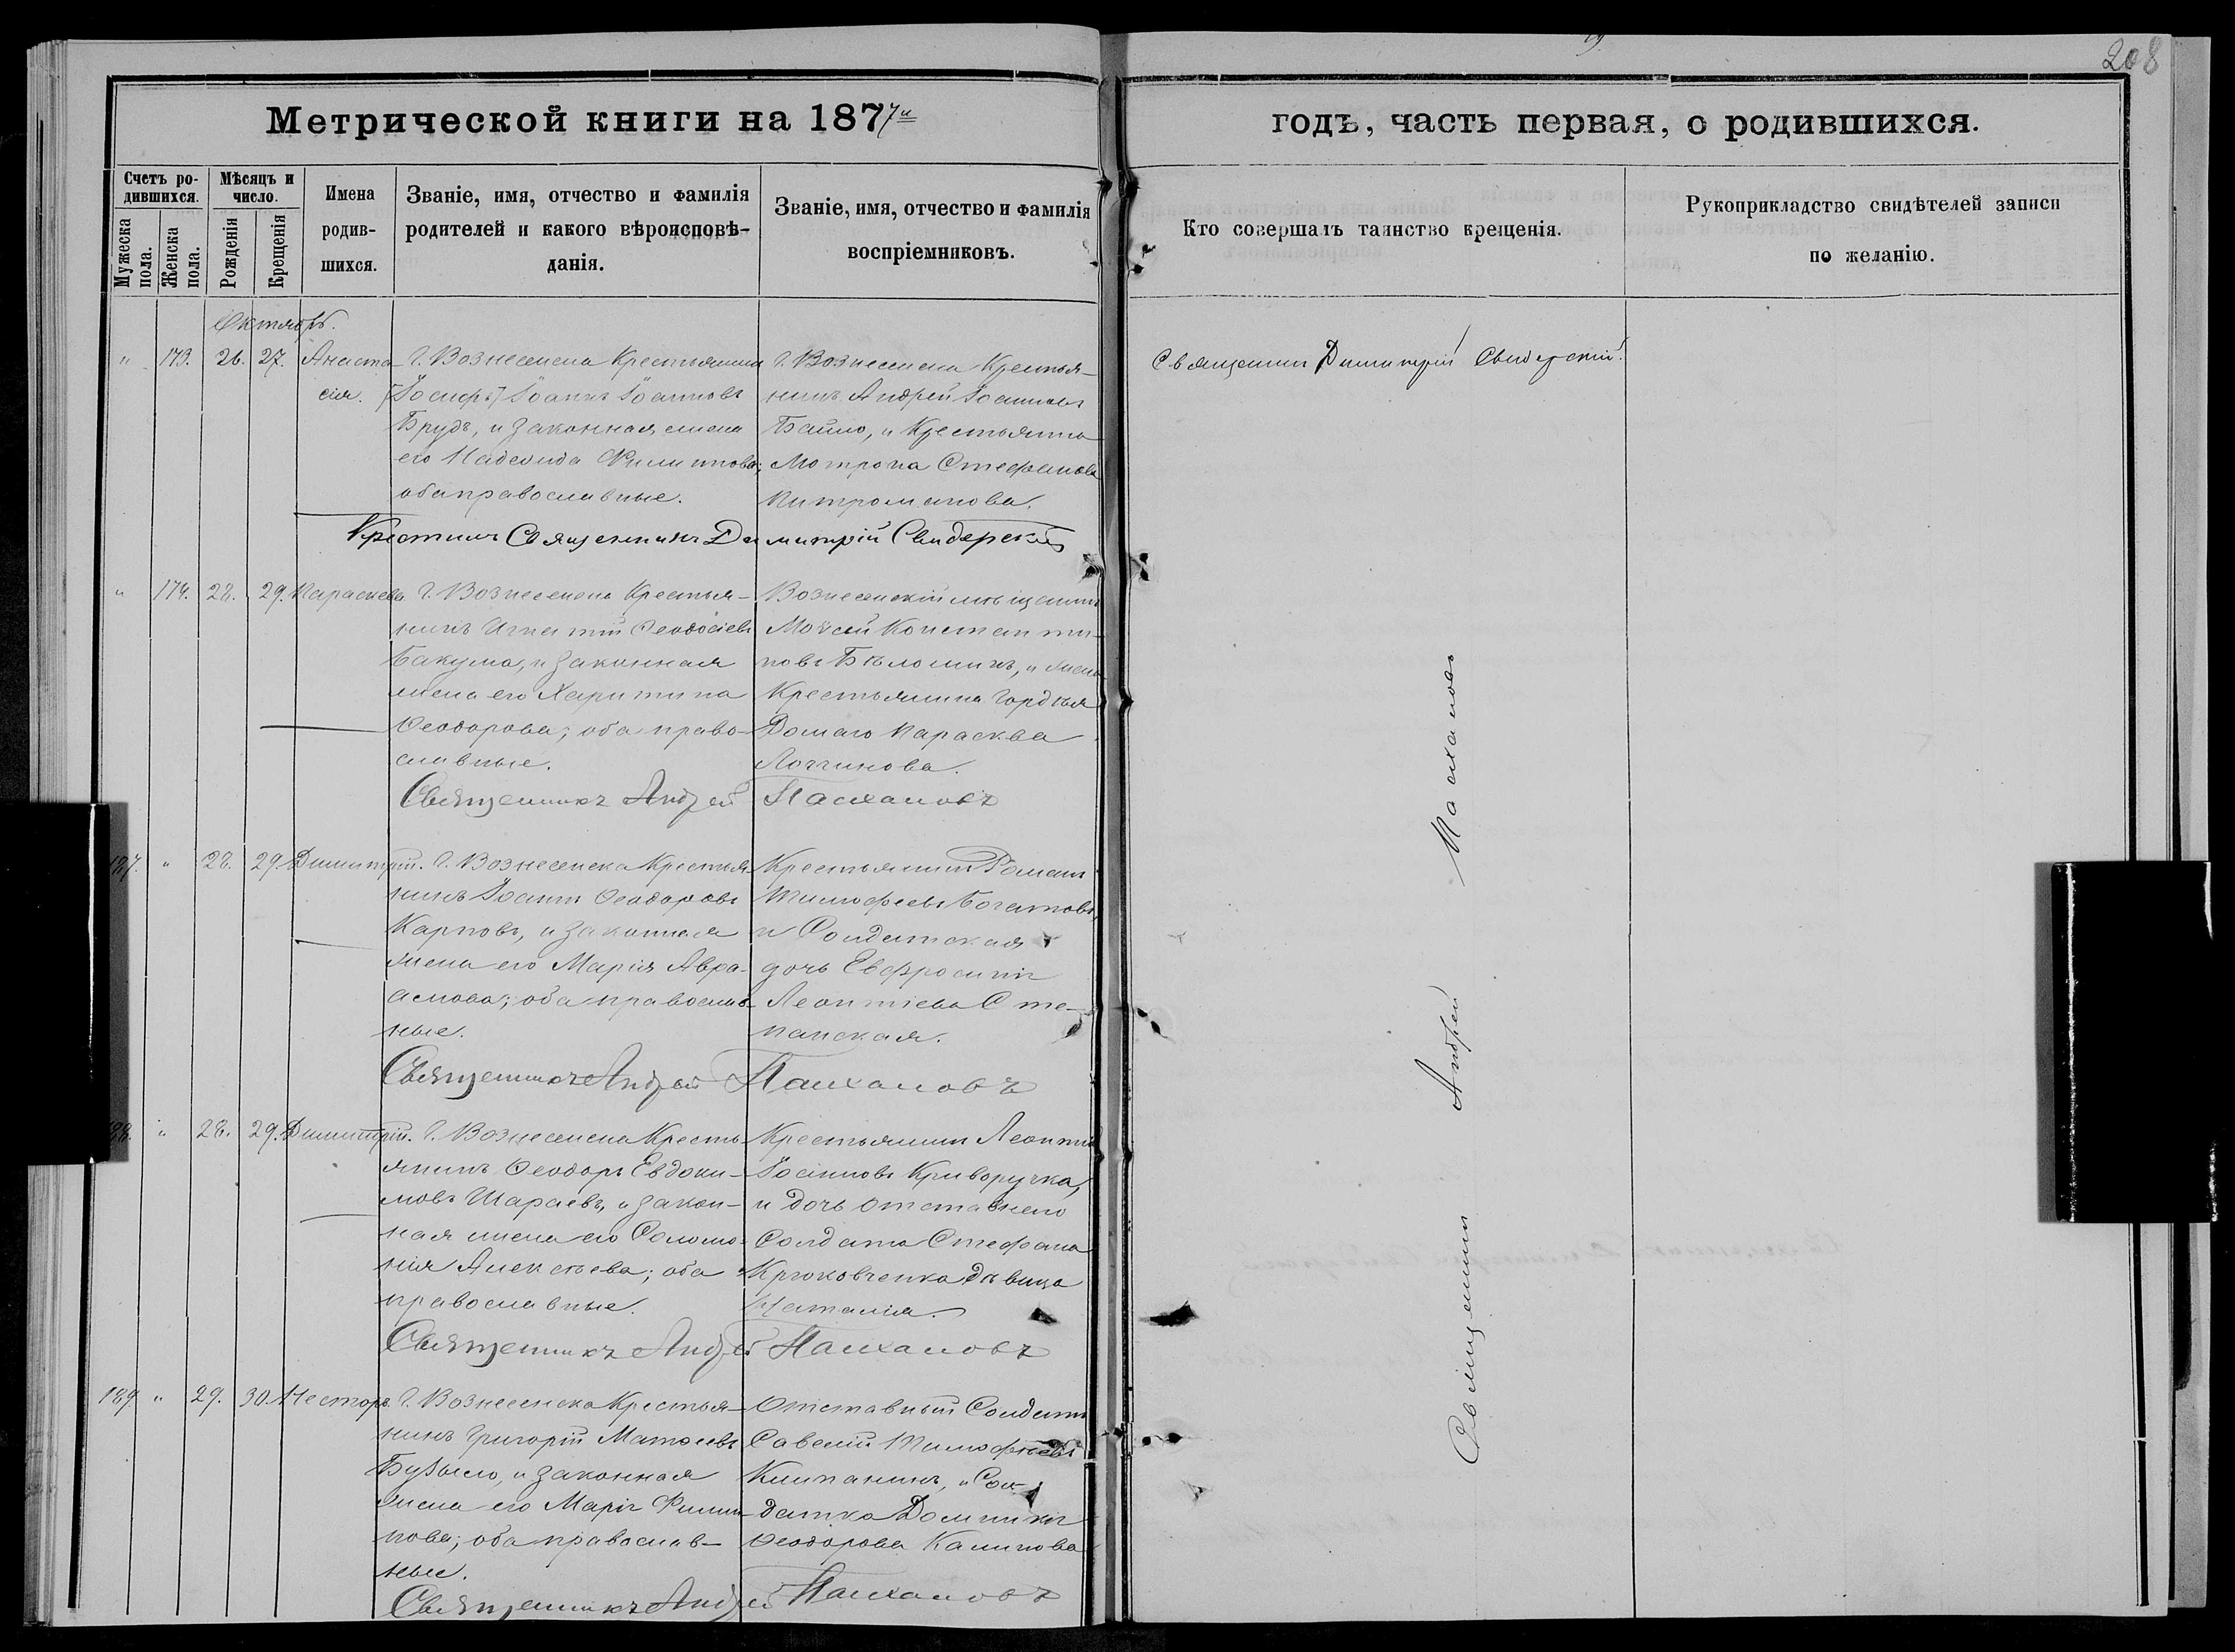 208
Метрической книги на 1877й
годъ, часть первая, о родившихся.
Счетъ ро-
дившихся.
Мѣсяцъ и
число.
Мужеска
пола.
Женска
пола.
Рожденія
Крещенія
Имена
родив-
шихся.
Званіе, имя, отчество и фамилія
родителей и какого вѣроисповѣ-
данія.
Званіе, имя, отчество и фамилія
воспріемниковъ.
Кто совершалъ таинство крещенія.
Рукоприкладство свидѣтелей записи
по желанію.
Октябрь.
" 173. 26. 27. Анаста-
сія.
Г. Вознесенска Крестьянинъ
(Іосифъ) Іоаннъ Іоанновъ
Брудь, и законная жена
его Надежда Филиппова;
оба православные.
Г. Вознесенска Крестья-
нинъ Андрей Іоанновъ
Байло, и Крестьянка
Мотрона Стефанова
Крестилъ Священникъ Димитрій Свидерскій
Священникъ Димитрій Свидерскій.
" 174. 28. 29. Параскева
Г. Вознесенска Крестья-
нинъ Игнатій Ѳеодосіевъ
Бакума, и законная
жена его Харитина
Ѳеодорова; оба право-
славные.
Вознесенскій мѣщанинъ
Моѵсей Константи-
новъ Бѣлошинъ, и жена
Крестьянина Гордѣя
Параскева
Логгинова.
Священникъ Андрей Пасхаловъ
187. " 28. 29. Димитрій.
Г. Вознесенска Крестья-
нинъ Іоаннъ Ѳеодоровъ
Карповъ, и законная
жена его Марія Авра-
амова; оба православ-
ные.
Крестьянинъ Романъ
Тимофеевъ Богатовъ,
и Солдатская
дочь Евфросинія
Леонтіева Сте-
панская.
Священникъ Андрей Пасхаловъ
188. " 28. 29. Димитрій.
Г. Вознесенска Кресть-
янинъ Ѳеодоръ Евдоки-
мовъ Шараевъ, и закон-
ная жена его Соломо-
нія Алексѣева; оба
православные.
Крестьянинъ Леонтій
Іоанновъ Криворучка,
и дочь отставнаго
Солдата Стефана
Крюковченка дѣвица
Наталія.
Священникъ Андрей Пасхаловъ
189 " 29. 30. Несторъ.
Г. Вознесенска Крестья-
нинъ Григорій Матѳеевъ
Бузыло, и законная
жена его Марія Филип-
пова; оба православ-
ные.
Отставный Солдатъ
Савелій Тимофѣевъ
и Сол-
датка Домникія
Ѳеодорова Калинова
Священникъ Андрей Пасхаловъ
Священникъ Андрей Пасхаловъ